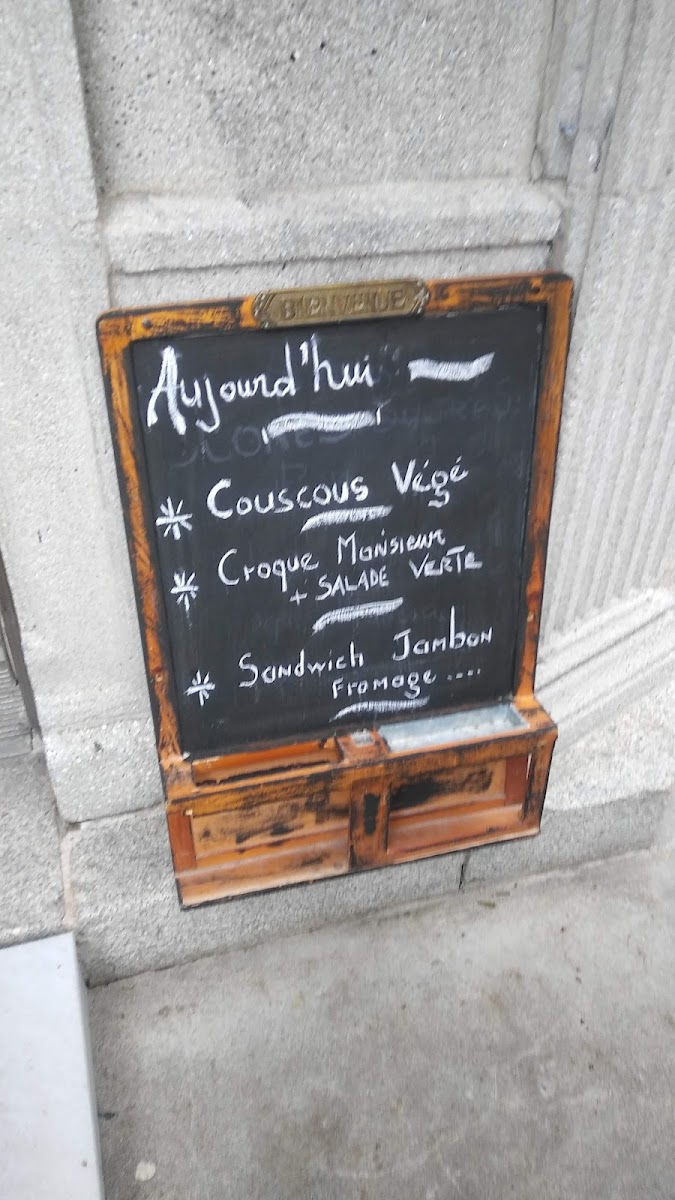 BIENVENUE
Aujourd'hui
* Couscous Végé
* Croque Monsieur
+ SALADE VERTE
* Sandwich Jambon
Fromage ....